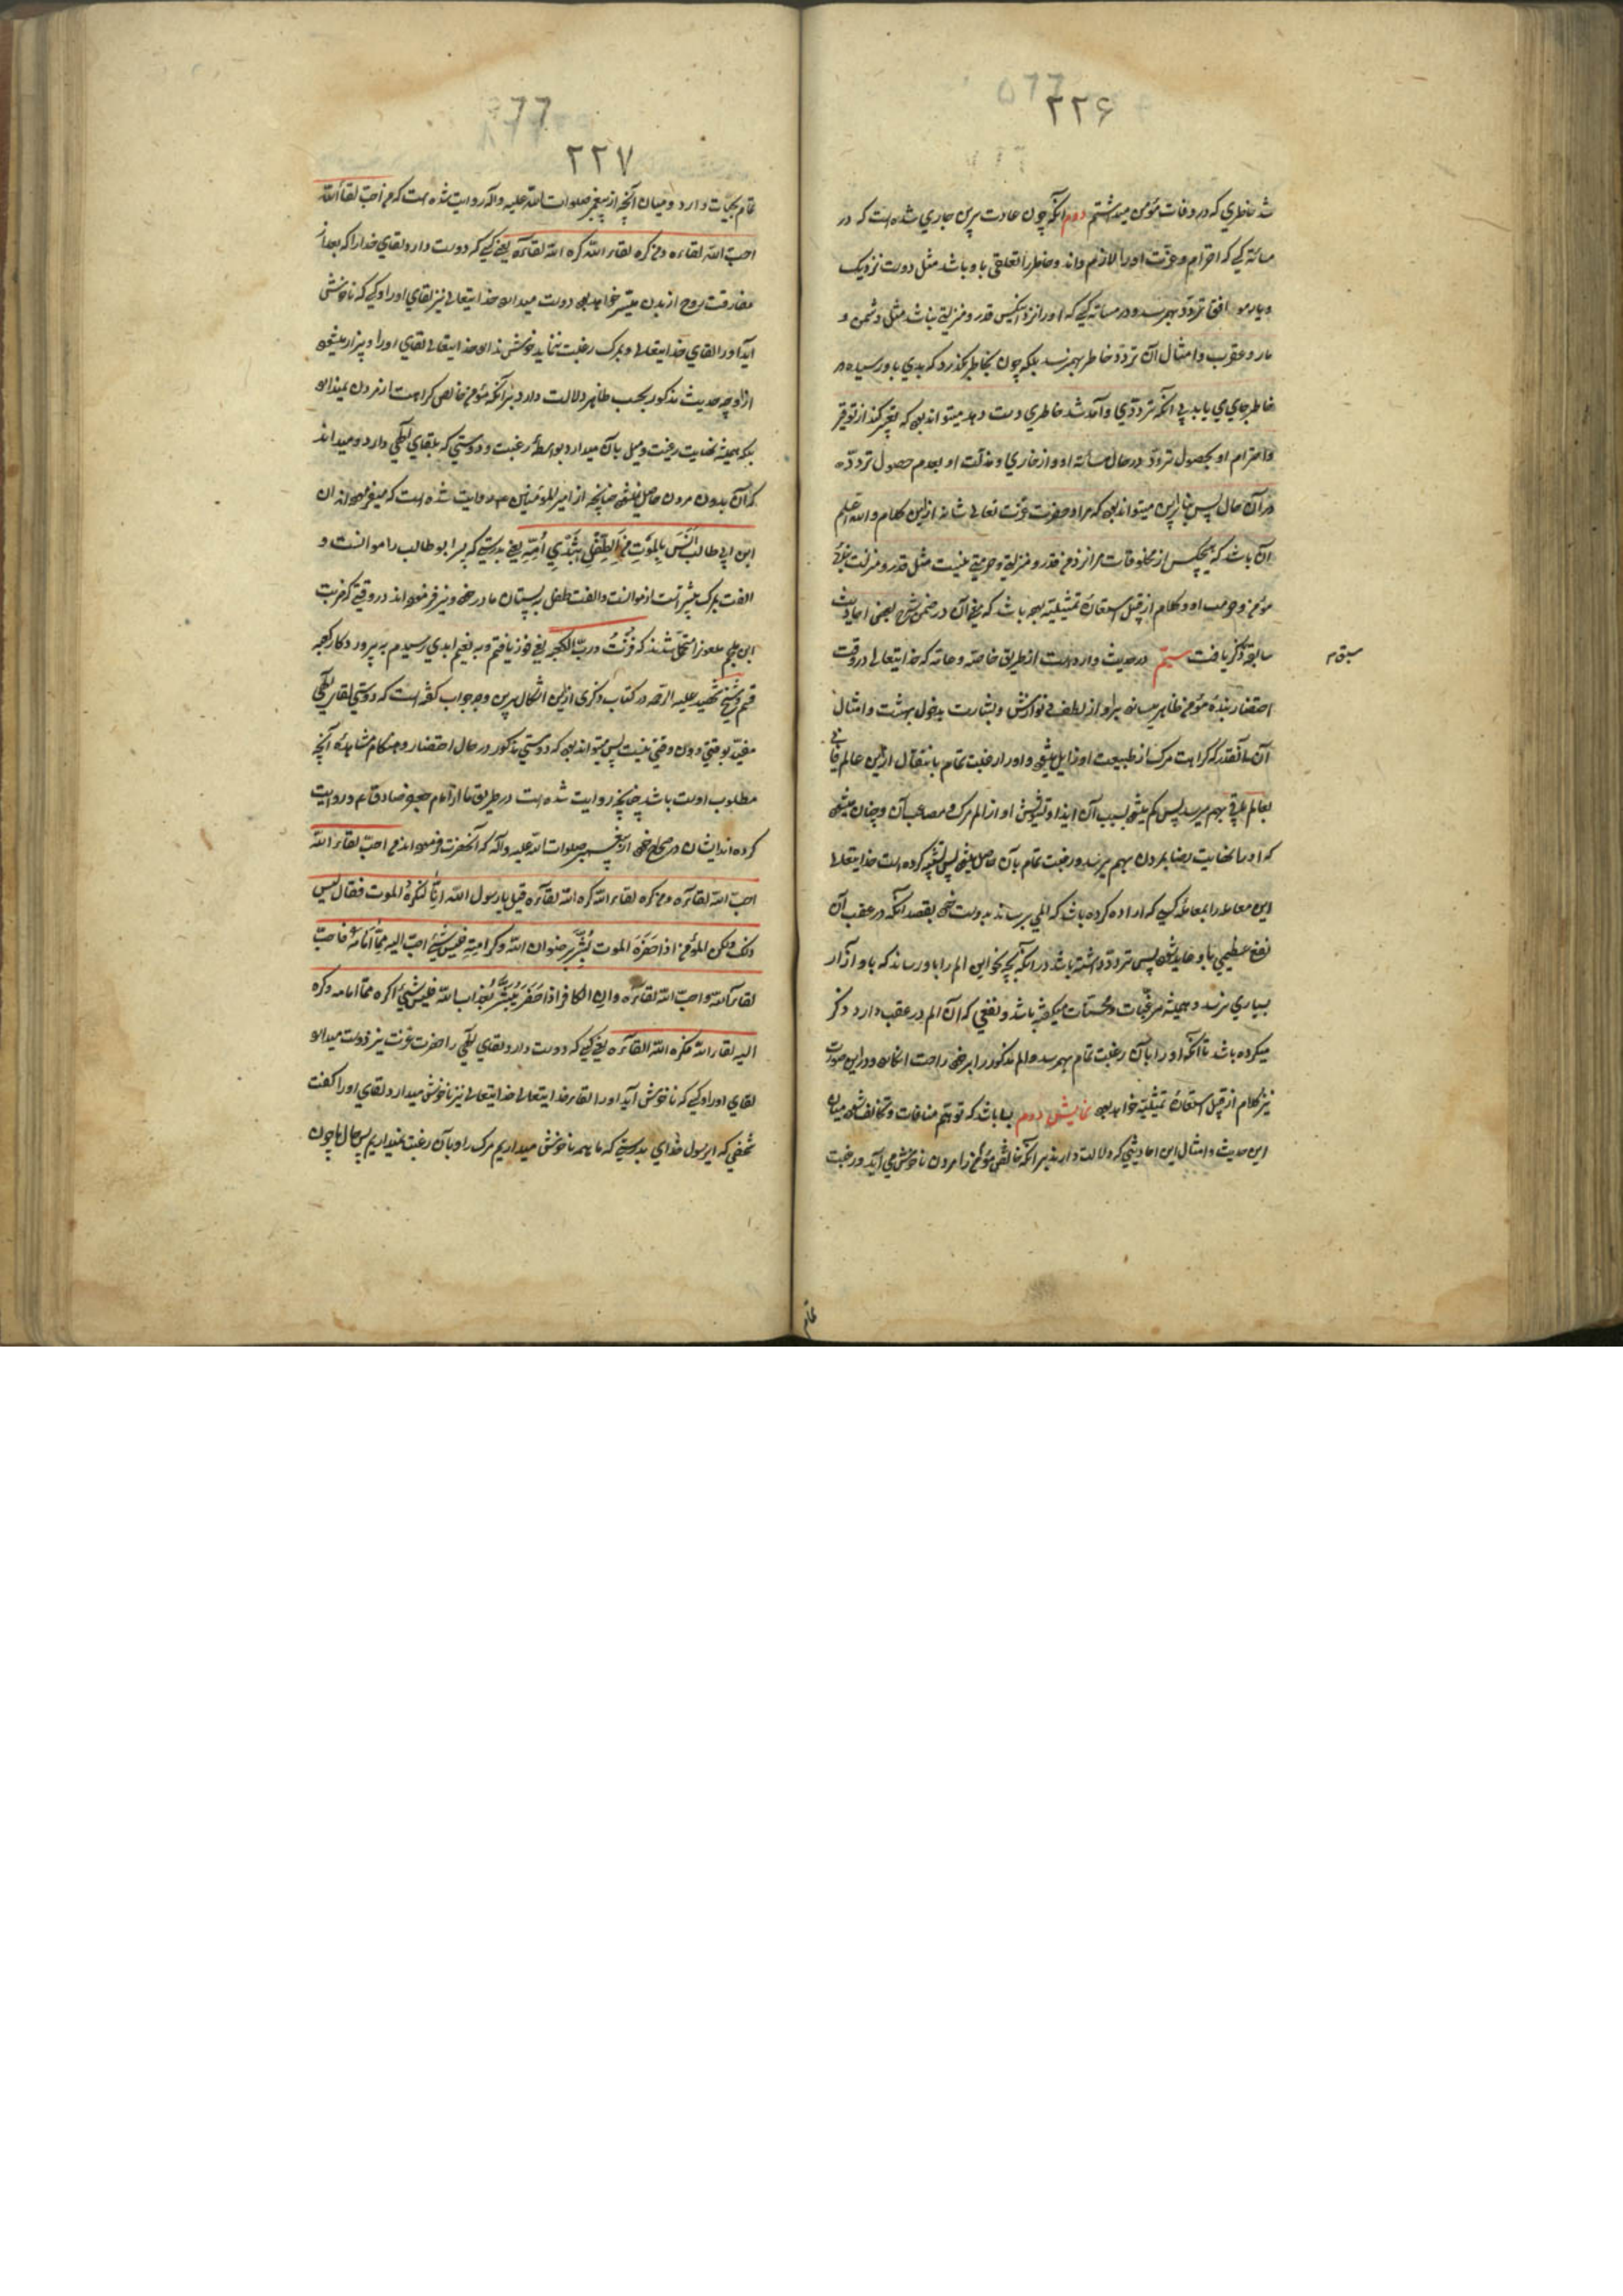 ۲۲۶
شد خاطری که در وفات مؤمن میداشتم دوم آنکه چون عادت برین جاری شده است که در
مسائه کسی که احترام و عزت او را لازم داند و خاطر را تعلقی باو باشد مثل دوست نزدیک
و یار موافق تردد بهم رسد و در مسائه کسی که او را نزد آنکس قدر و منزلتی نباشد مثل دشمن و
مار و عقرب و امثال آن تردد خاطر بهم نرسد بلکه چون بخاطر گذرد که بدی باو رسد در
خاطر جای می یابد بی آنکه ترددی و آمد شد خاطری دست دهد میتواند بود که تعبیر کند از توقیر
و احترام او بحصول تردد در حال مسائه او و از خاری و مذلت او بعدم حصول تردد
در آن حال پس بنابراین میتواند بود که مراد حضرت عزت تعالی شانه ازین کلام والله اعلم
آن باشد که هیچکس از مخلوقات مرا نزد من قدر و منزلتی و حرمتی نیست مثل قدر و منزلت بنده
مؤمن و حرمت او و کلام از قبیل استعاره تمثیلیه بوده باشد که معنی آن در ضمن شرح بعضی احادیث
سابق ذکر یافت سیم در حدیث وارد است از طریق خاصه و عامه که خدایتعالی در وقت
سبق م
احتضار بنده مؤمن ظاهر میسازد براو از لطف و نوازش و بشارت بدخول بهشت و امثال
آن آنقدر که کراهت مرک از طبیعت او زایل میشود و او را رغبت تمام بانتقال ازین عالم فانی
بعالم باقی بهم میرسد پس کم میشود بسبب آن ایذا و تشویش او از الم مرک و مصاعب آن و چنان میشود
که او را نهایت رضا بمردن بهم میرسد و رغبت تمام بآن حاصل میشود پس تشبیه کرده است خدایتعالی
این معامله را بمعامله کسی که اراده کرده باشد که المی برساند بدوست خود بقصد آنکه در عقب آن
نفع عظیمی باو عاید شود پس تردد داشته باشد در آنکه چه نحو این الم را باو رساند که باو آزار
بسیاری نرسد و همیشه مرغبات و محسنات میگفته باشد و نفعی که آن الم در عقب دارد ذکر
میکرده باشد تا آنکه او را بآن رغبت تمام بهم رسد و الم مذکور را بر خود راحت انگارد و در این صورت
نیز کلام از قبیل استعاره تمثیلیه خواهد بود نمایش دوم بسا باشد که توهم منافات و تخالف شود میان
این حدیث و امثال این احادیثی که دلالت دارند بر آنکه خالص مؤمن را مردن ناخوش می آید و رغبت
۲۲۷
تمام بحیات دارد و میان آنچه از پیغمبر صلوات الله علیه و آله روایت شده است که من احب لقاء الله
احب الله لقاءه و من کره لقاء الله کره الله لقاءه یعنی کسی که دوست دارد لقای خدا را که بعد از
مفارقت روح از بدن میسر خواهد بود دوست میدارد خدایتعالی نیز لقای او را و کسی که ناخوش
آید او را لقای خدایتعالی و بمرک رغبت ننماید خوش ندارد خدایتعالی لقای او را و بیزار میشود
ازاو چه حدیث مذکور بحسب ظاهر دلالت دارد بر آنکه مؤمن خالص کراهت از مردن نمیدارد
بلکه همیشه نهایت رغبت و میل بآن میدارد بواسطه رغبت و دوستی که بلقای الهی دارد و میداند
که آن بدون مردن حاصل نمیشود چنانچه از امیرالمؤمنین ع روایت شده است که میفرموده اند ان
ابن ابی طالب آنس بالموت من الطفل بثدی امه یعنی بدرستی که پسر ابو طالب را موانست و
الفت بمرک بیشتر است از موانست و الفت طفل به پستان مادر خود و نیز فرموده اند در وقتی که ضربت
ابن ملجم ملعون را متحمل شدند که فزت و رب الکعبه یعنی فوز یافتم و به نعیم ابدی رسیدم به پرورد کار کعبه
قسم و شیخ شهید علیه الرحمه در کتاب ذکری ازین اشکال برین وجه جواب گفته است که دوستی لقای الهی
مقید بوقتی دون وقتی نیست پس میتواند بود که دوستی مذکور در حال احتضار و هنکام مشاهده آنچه
مطلوب اوست باشد چنانچه روایت شده است در طریق ما از امام جعفر صادق ع و روایت
کرده اند ایشان در صحاح خود از پیغمبر صلوات الله علیه و آله که آنحضرت فرموده اند من احب لقاء الله
احب الله لقاءه و من کره لقاء الله کره الله لقاءه قیل یا رسول الله انا لنکره الموت فقال لیس
ذلک ولکن المؤمن اذا حضره الموت بشر برضوان الله و کرامته فلیس شیئ احب الیه مما امامه فاحب
لقاء الله و احب الله لقاءه و ان الکافر اذا حضر بشر بعذاب الله فلیس شیئ اکره مما امامه و کره
الیه لقاء الله فکره الله لقاءه یعنی کسی که دوست دارد لقای الهی را حضرت عزت نیز دوست میدارد
لقای او را و کسی که ناخوش آید او را لقاء خدایتعالی خدایتعالی نیز ناخوش میدارد لقای او را گفت
شخصی که ای رسول خدای بدرستی که ما همه ناخوش میداریم مرک را و بآن رغبت نمیداریم پس حال ما چون